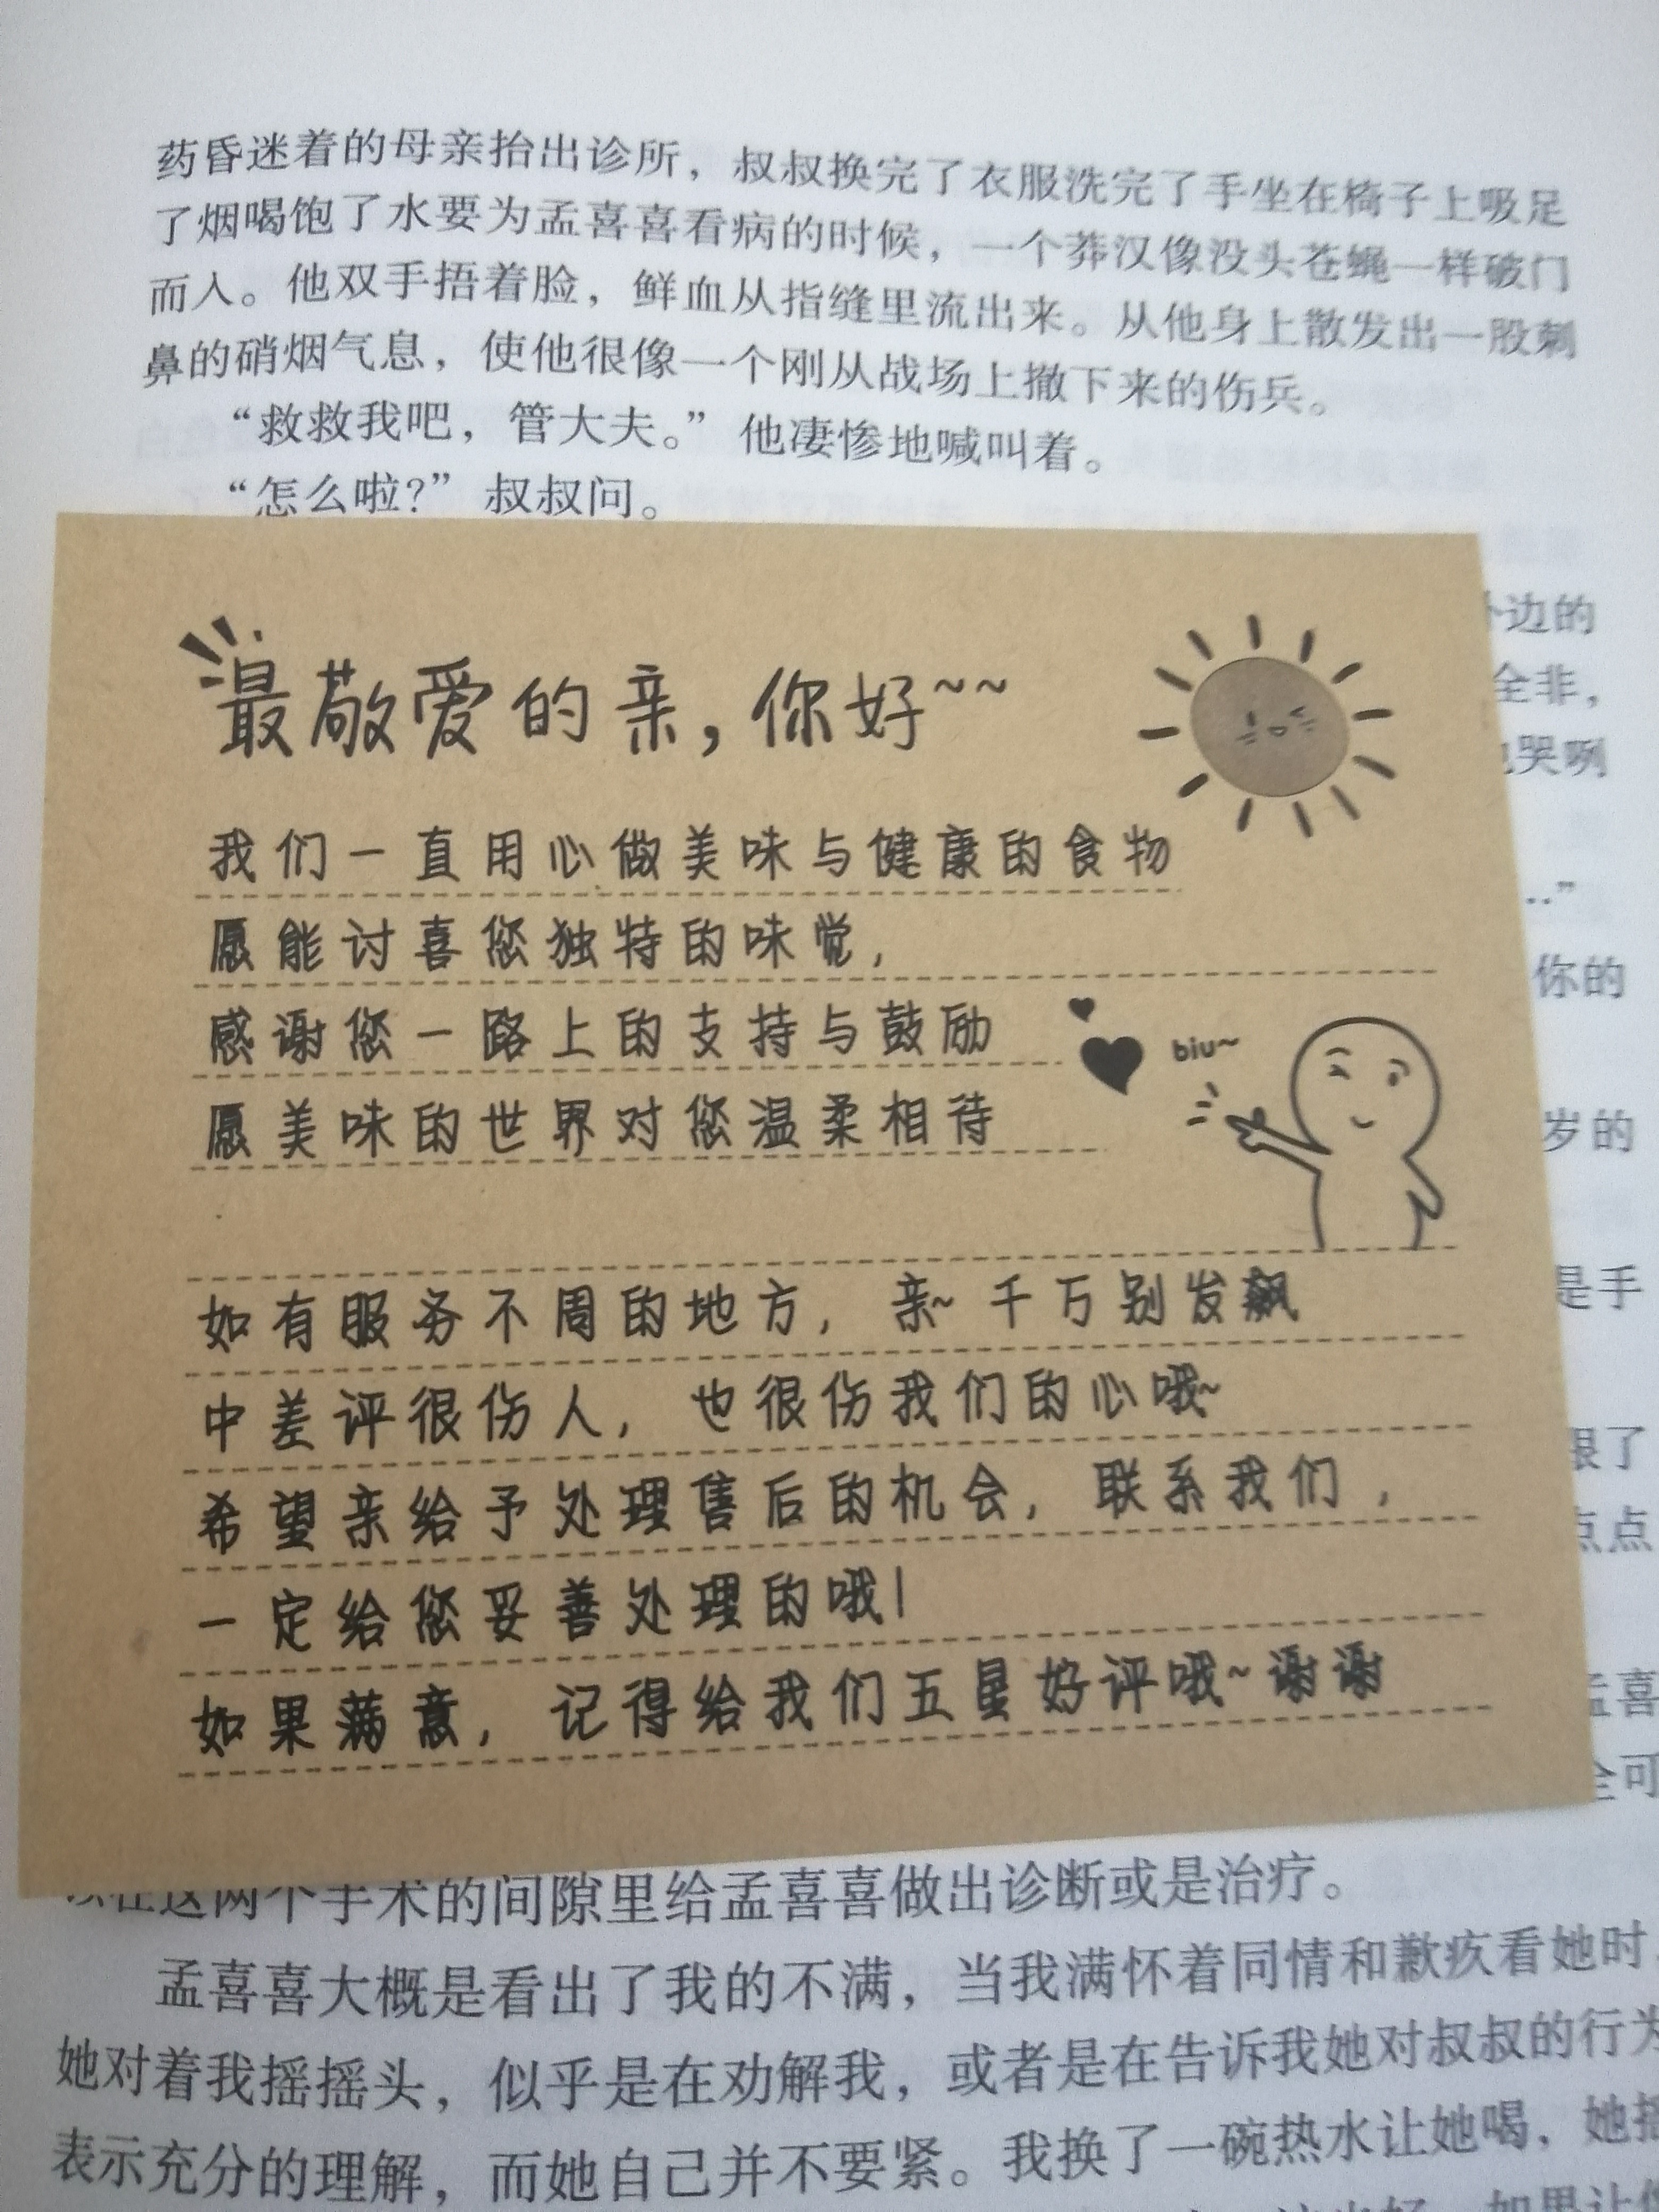 药昏迷着的母亲抬出诊所，叔叔换完了衣服洗完了手坐在椅子上吸足
了烟喝饱了水要为孟喜喜看病的时候，一个莽汉像没头苍蝇一样破门
而入。他双手捂着脸，鲜血从指缝里流出来。从他身上散发出一股刺
鼻的硝烟气息，使他很像一个刚从战场上撤下来的伤兵。
“救救我吧，管大夫。”他凄惨地喊叫着。
“怎么啦？”叔叔问。
边的
全非，
哭咧
…”
你的
岁的
是手
跟了
点点
孟喜
全可
最敬爱的亲，你好~~
我们一直用心做美味与健康的食物
愿能讨喜您独特的味觉，
感谢您一路上的支持与鼓励
biu~
愿美味的世界对您温柔相待
如有服务不周的地方，亲~千万别发飙
中差评很伤人，也很伤我们的心哦~
希望亲给予处理售后的机会，联系我们，
一定给您妥善处理的哦！
如果满意，记得给我们五星好评哦~谢谢
在这两个手术的间隙里给孟喜喜做出诊断或是治疗。
孟喜喜大概是看出了我的不满，当我满怀着同情和歉疚看她时，
她对着我摇摇头，似乎是在劝解我，或者是在告诉我她对叔叔的行为
表示充分的理解，而她自己并不要紧。我换了一碗热水让她喝，她摇